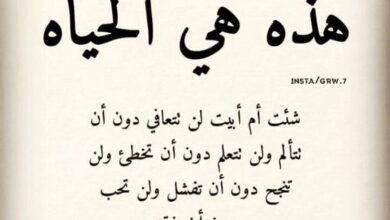 هذه هي الحياه
INSTA/GRW.7
شئت أم أبيت لن تتعافي دون أن
تتألم ولن تتعلم دون أن تخطئ ولن
تنجح دون أن تفشل ولن تحب